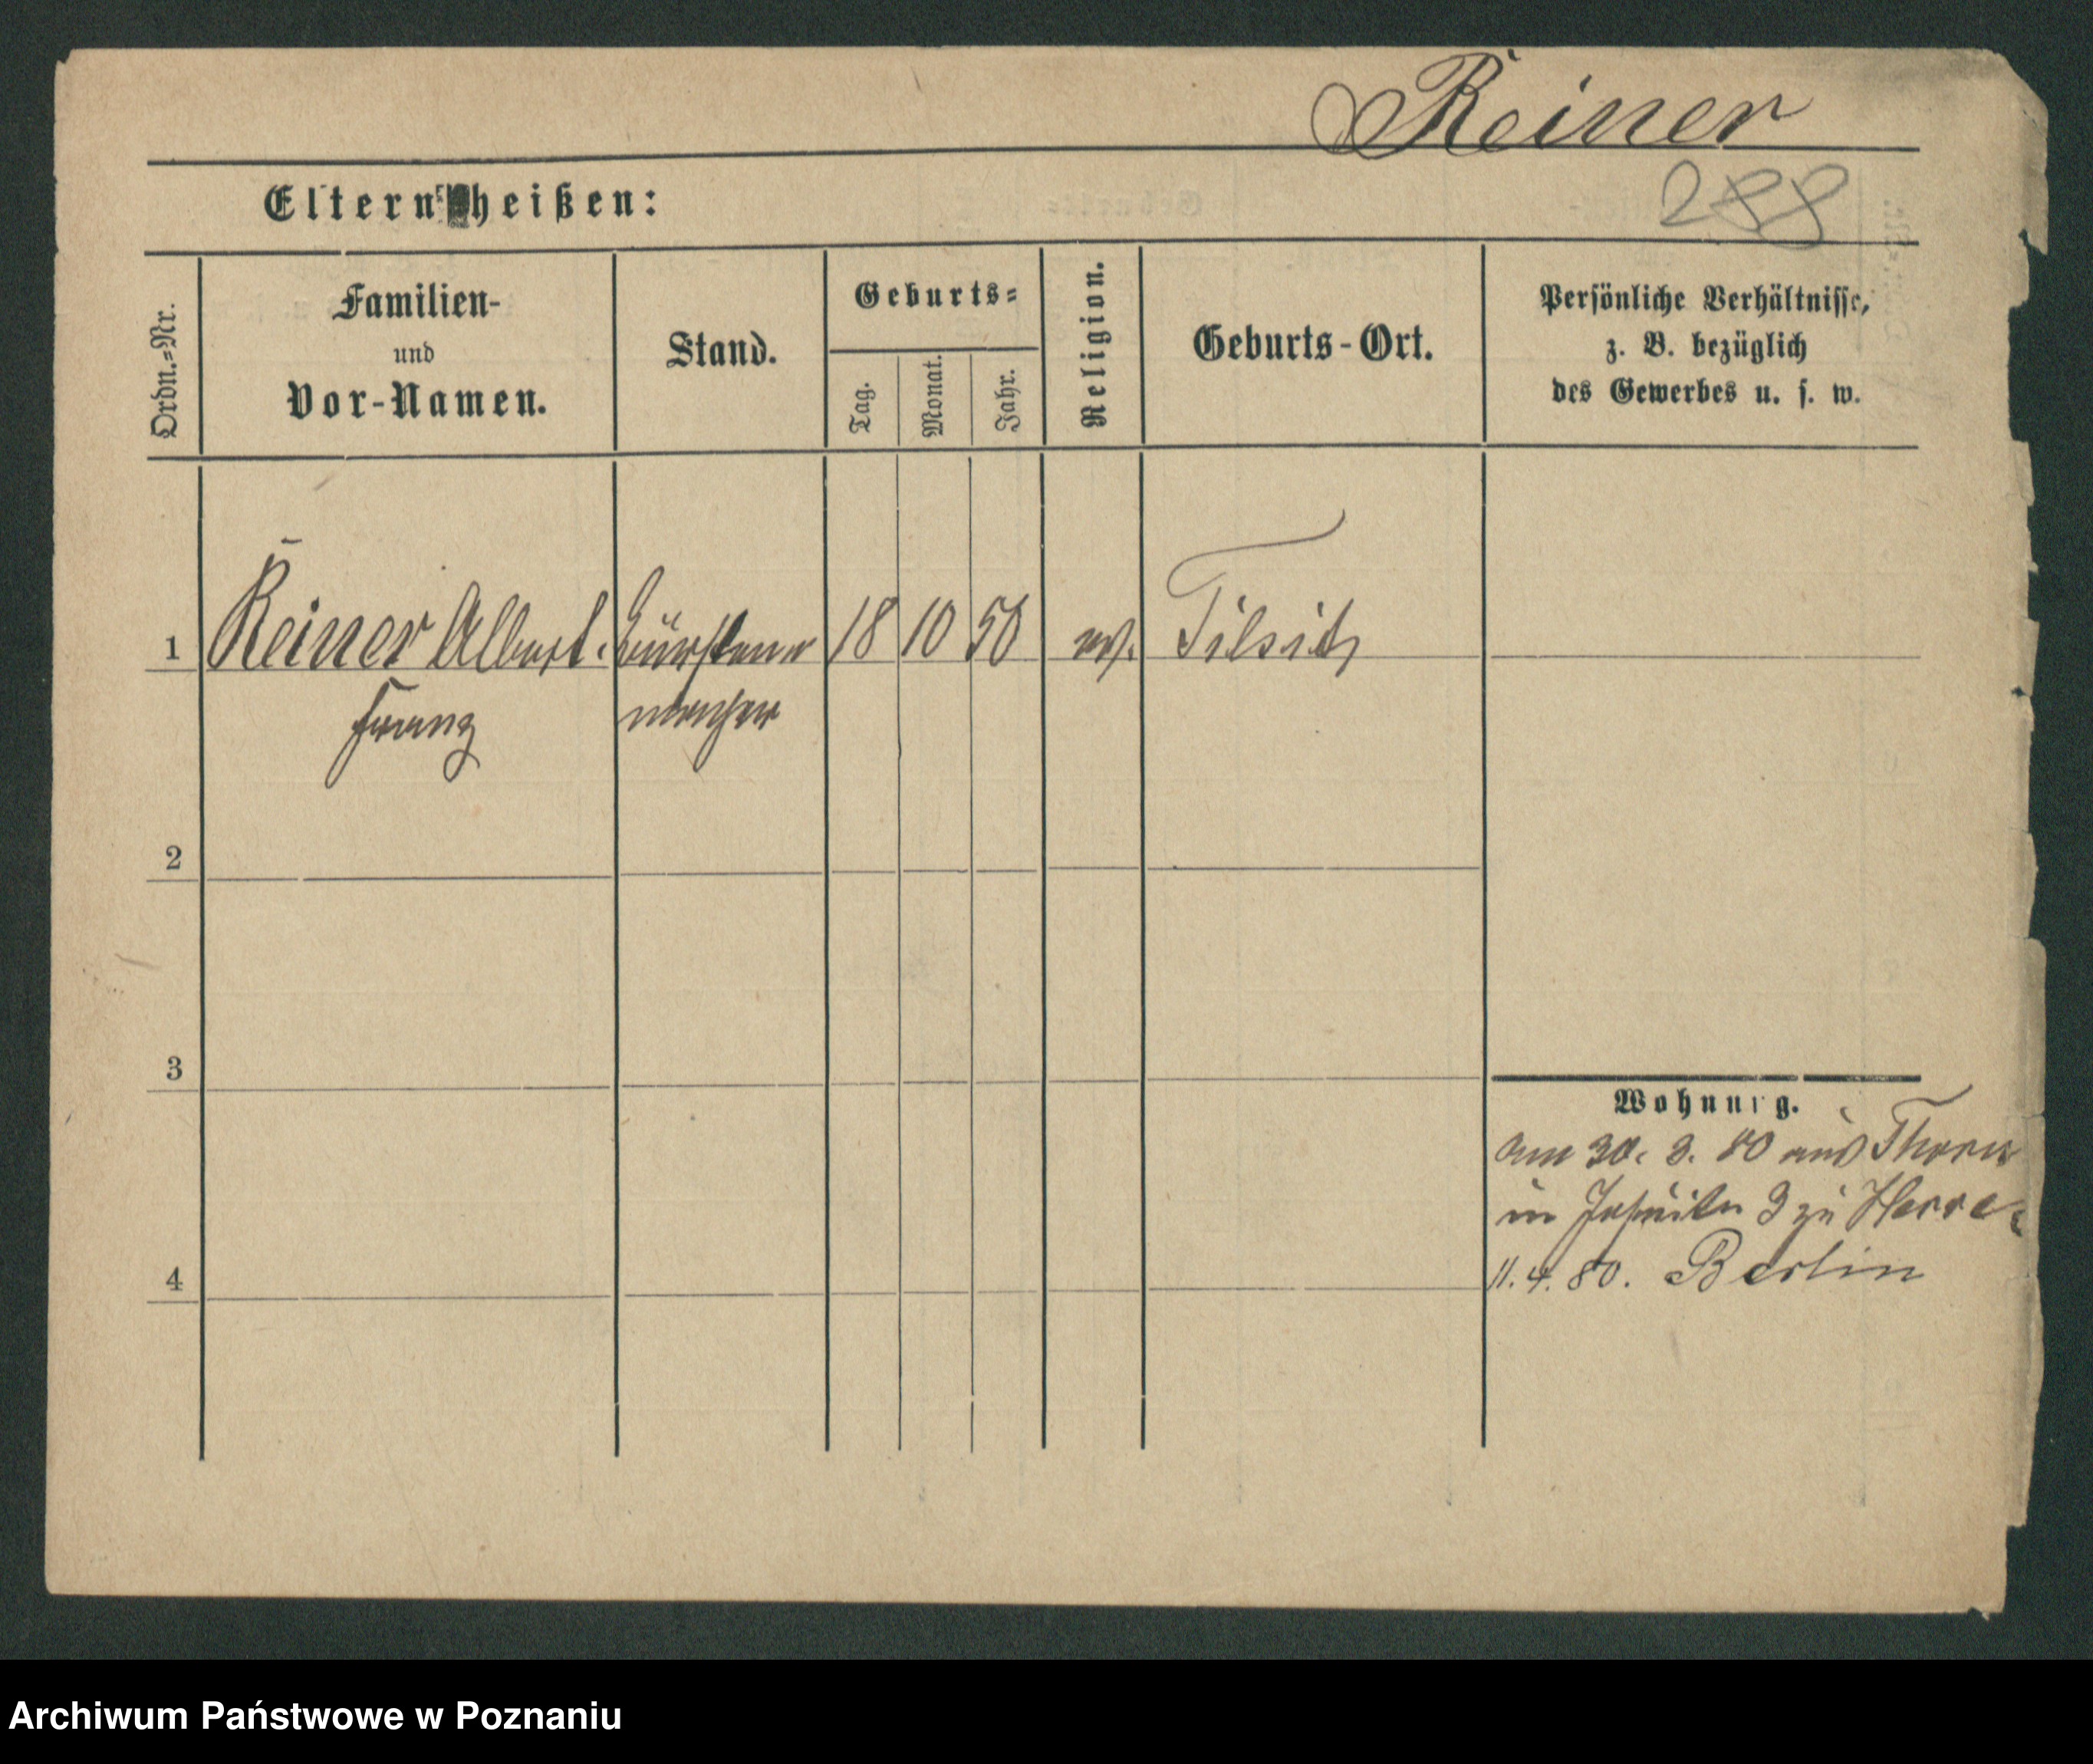 Reiner
288
Eltern heißen:
Ordn.=Nr.
Familien-
und
Vor-Namen.
Stand.
Geburts=
Tag.
Monat.
Jahr.
Religion.
Geburts-Ort.
Persönliche Verhältnisse,
z. B. bezüglich
des Gewerbes u. s. w.
1 Reiner Albert. bürsten 18 10 50 ev. Tilsit
Franz macher
2
3
4
Wohnung.
am 30. 3. 80 aus Thorn
in Jesuiten 3 zu
11. 4. 80. Berlin
Archiwum Państwowe w Poznaniu